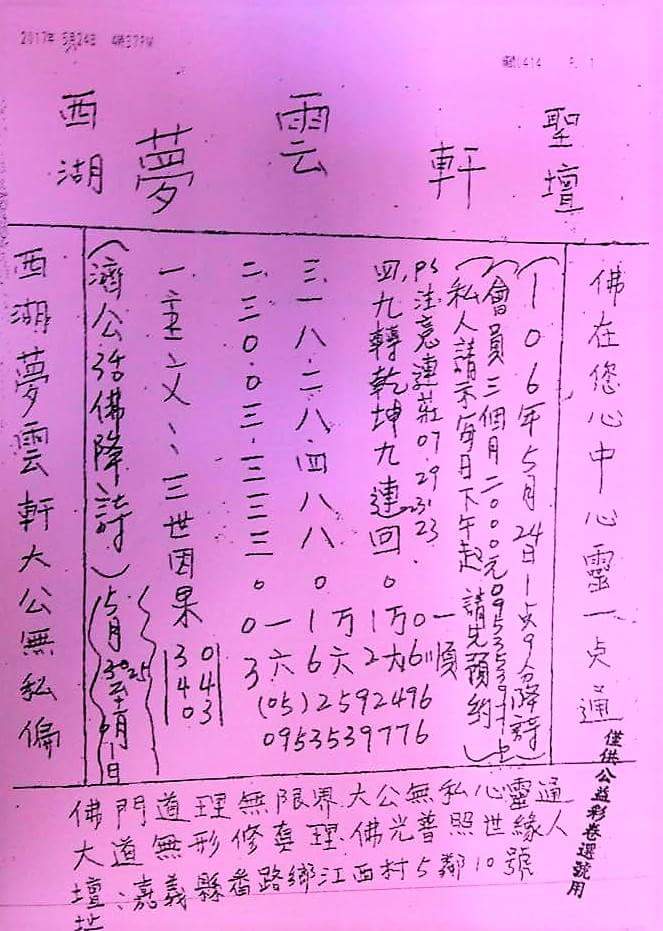 2017年 5月24日 4時37PM
P. 1
西湖夢雲軒聖壇
佛在您心中心靈一点通
(106年5月24日1点9分降詩)
(會員三個月二000元
(私人請示每日下午起 請先預約)
PS注意連莊07.29.31.23.
四九轉乾坤九連回。
三一八.二八.四八八。
二.三0.0三.三三三。
一.主文:三世因果
(濟公活佛降詩)
西湖夢雲軒大公無私偏
(05)2592496
0953539776
佛門道理無限界大公無私心靈通
大道無形修真理佛光普照世緣人
壇址:嘉義縣番路鄉江西村5鄰10號
僅供公益彩卷選號用